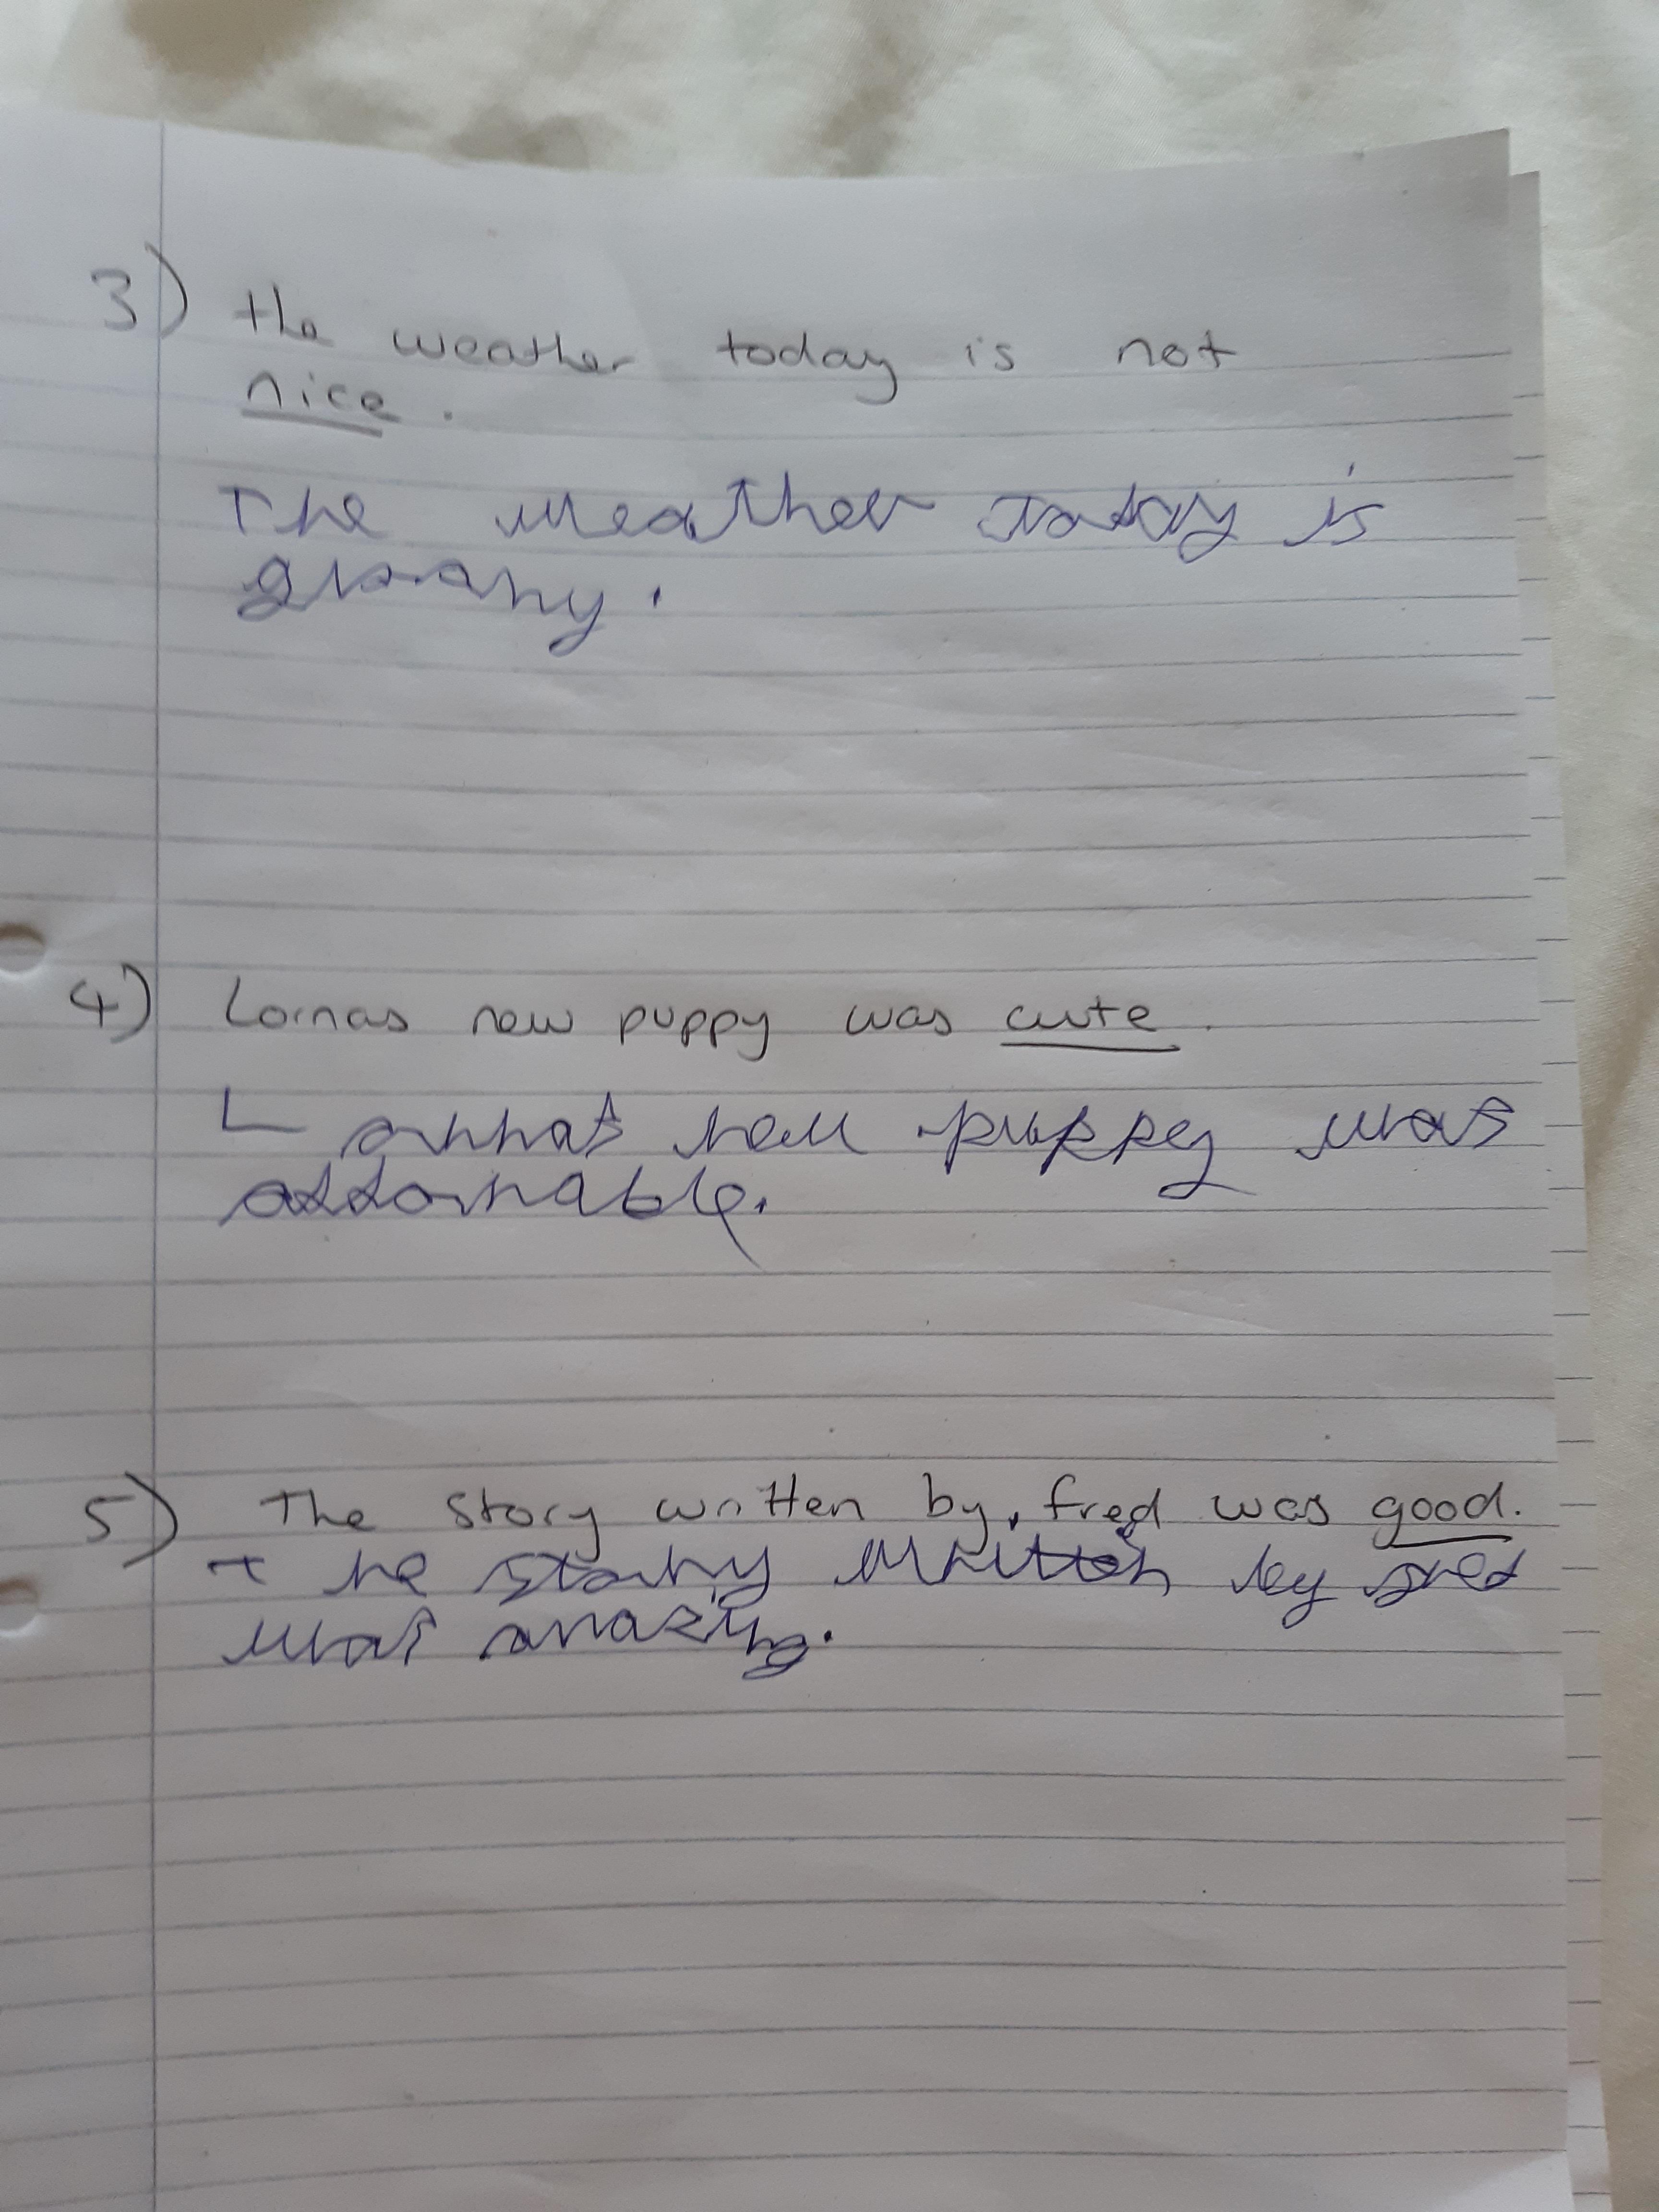 3) the weather today is not
nice.
The weather today is
4) Lornas new puppy was cute.
Lornas new puppy was
5) The story written by, fred was good.
The story written by fred
was amazing.